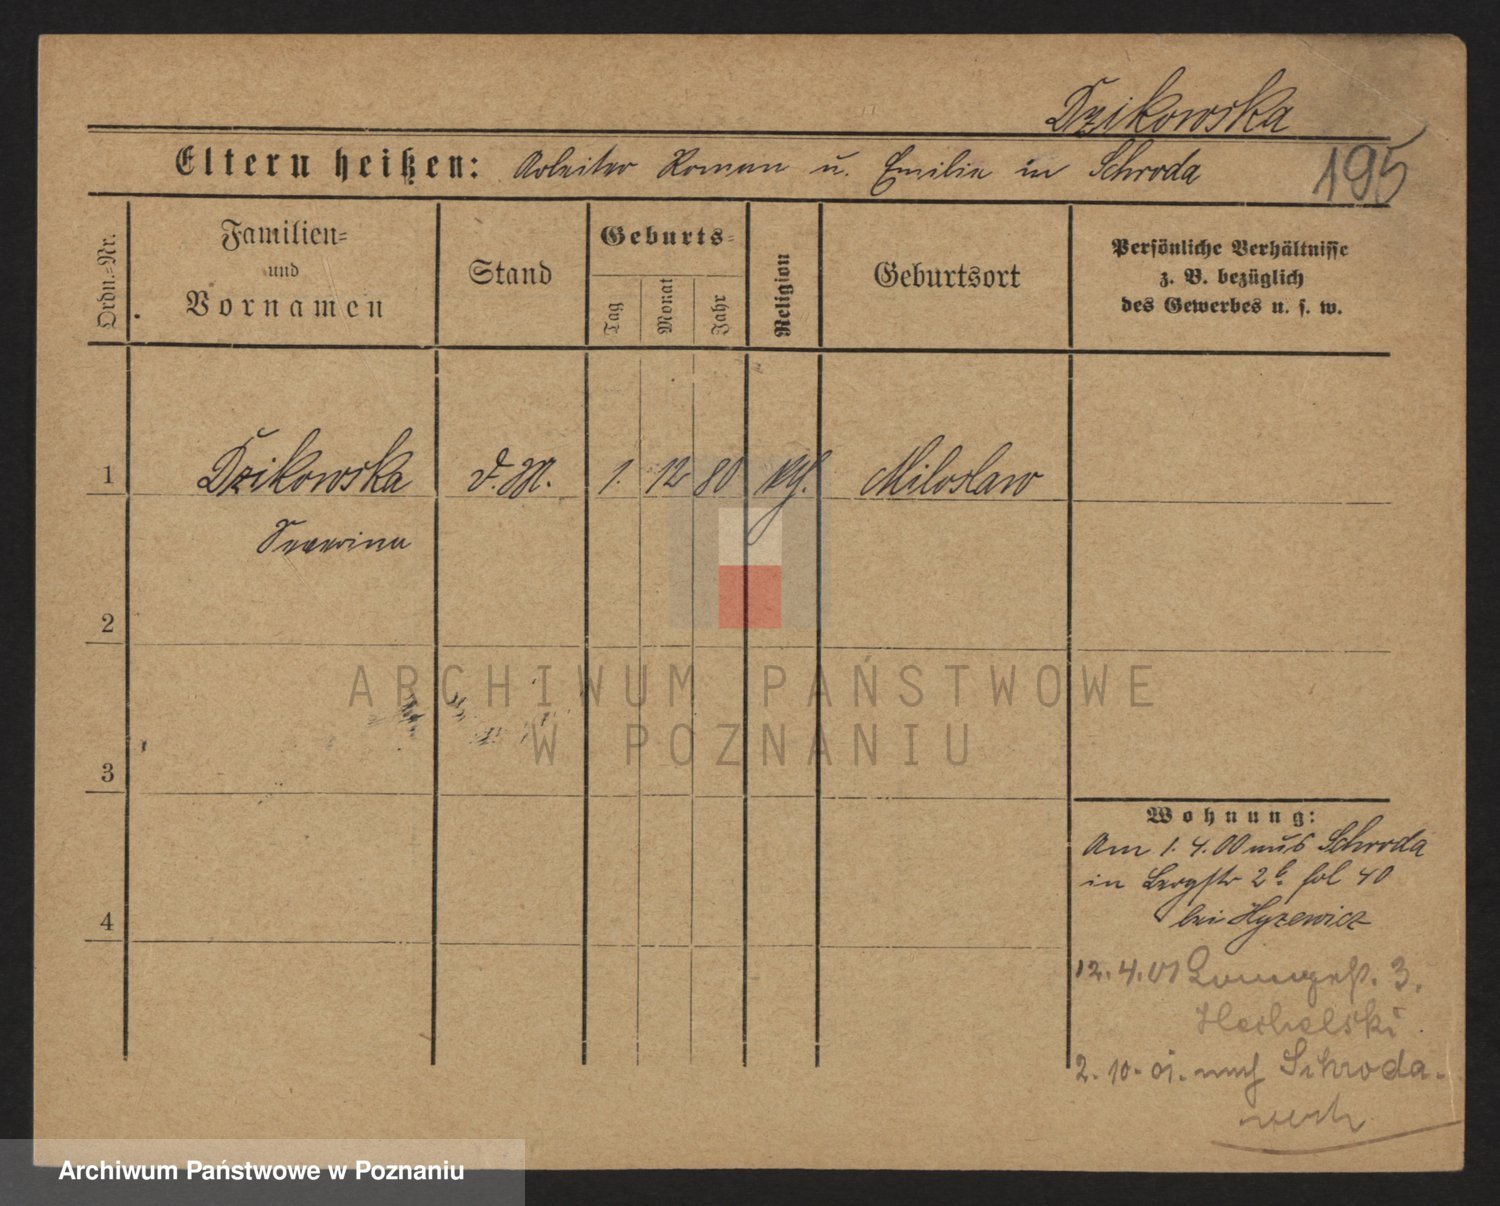 Dzikowska
Eltern heißen: Arbeiter Roman u. Emilie in Schroda
195
Ordn.=Nr.
Familien=
und
Vornamen
Stand
Geburts=
Tag
Monat
Jahr
Religion
Geburtsort
Persönliche Verhältnisse
z. B. bezüglich
des Gewerbes u. s. w.
1 Dzikowska D. M. 1. 12 80 Miloslaw
Severina
2
3
4
Wohnung:
Am 1. 4. 00 aus Schroda
in Bergstr 2b. fol 40
bei Hyzewicz
12. 4. 01 3.
2. 10. 01. nach Schroda
ARCHIWUM PAŃSTWOWE
W POZNANIU
Archiwum Państwowe w Poznaniu